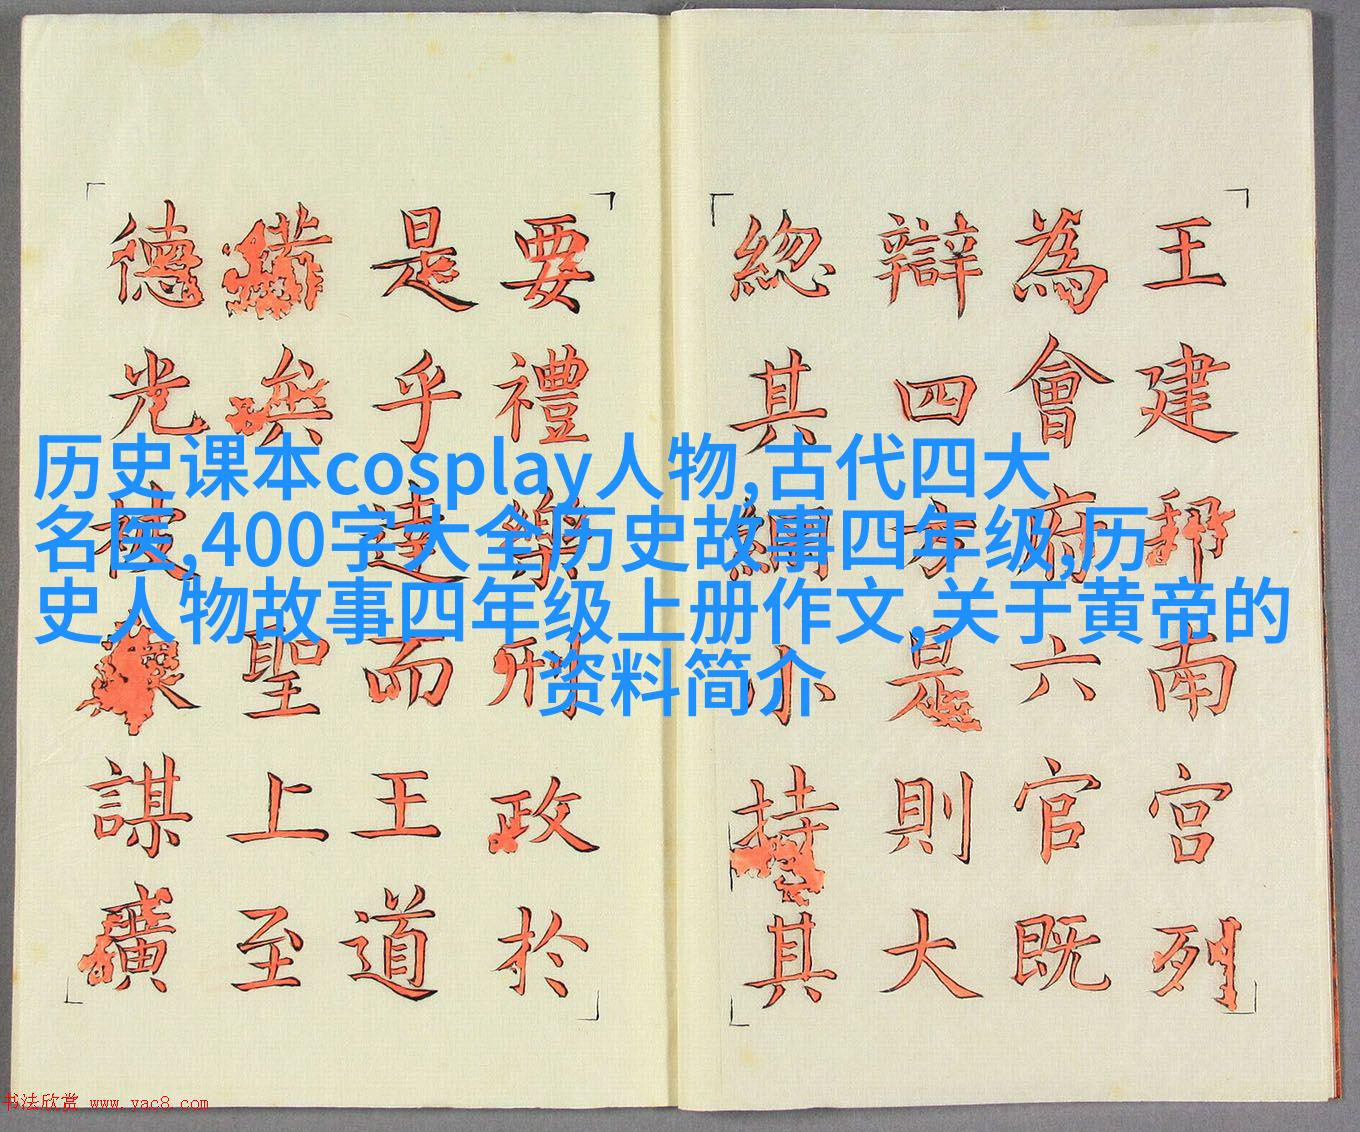 王建邦南宮列
為會府六官既
辯四方是則大
總其綱小持其
要禮樂刑政於
是乎達而王道
備矣聖上至
德光被謀
历史课本cosplay人物,古代四大
名医,400字大全历史故事四年级,历
史人物故事四年级上册作文,关于黄帝的
资料简介
书法欣赏 www.yac8.com